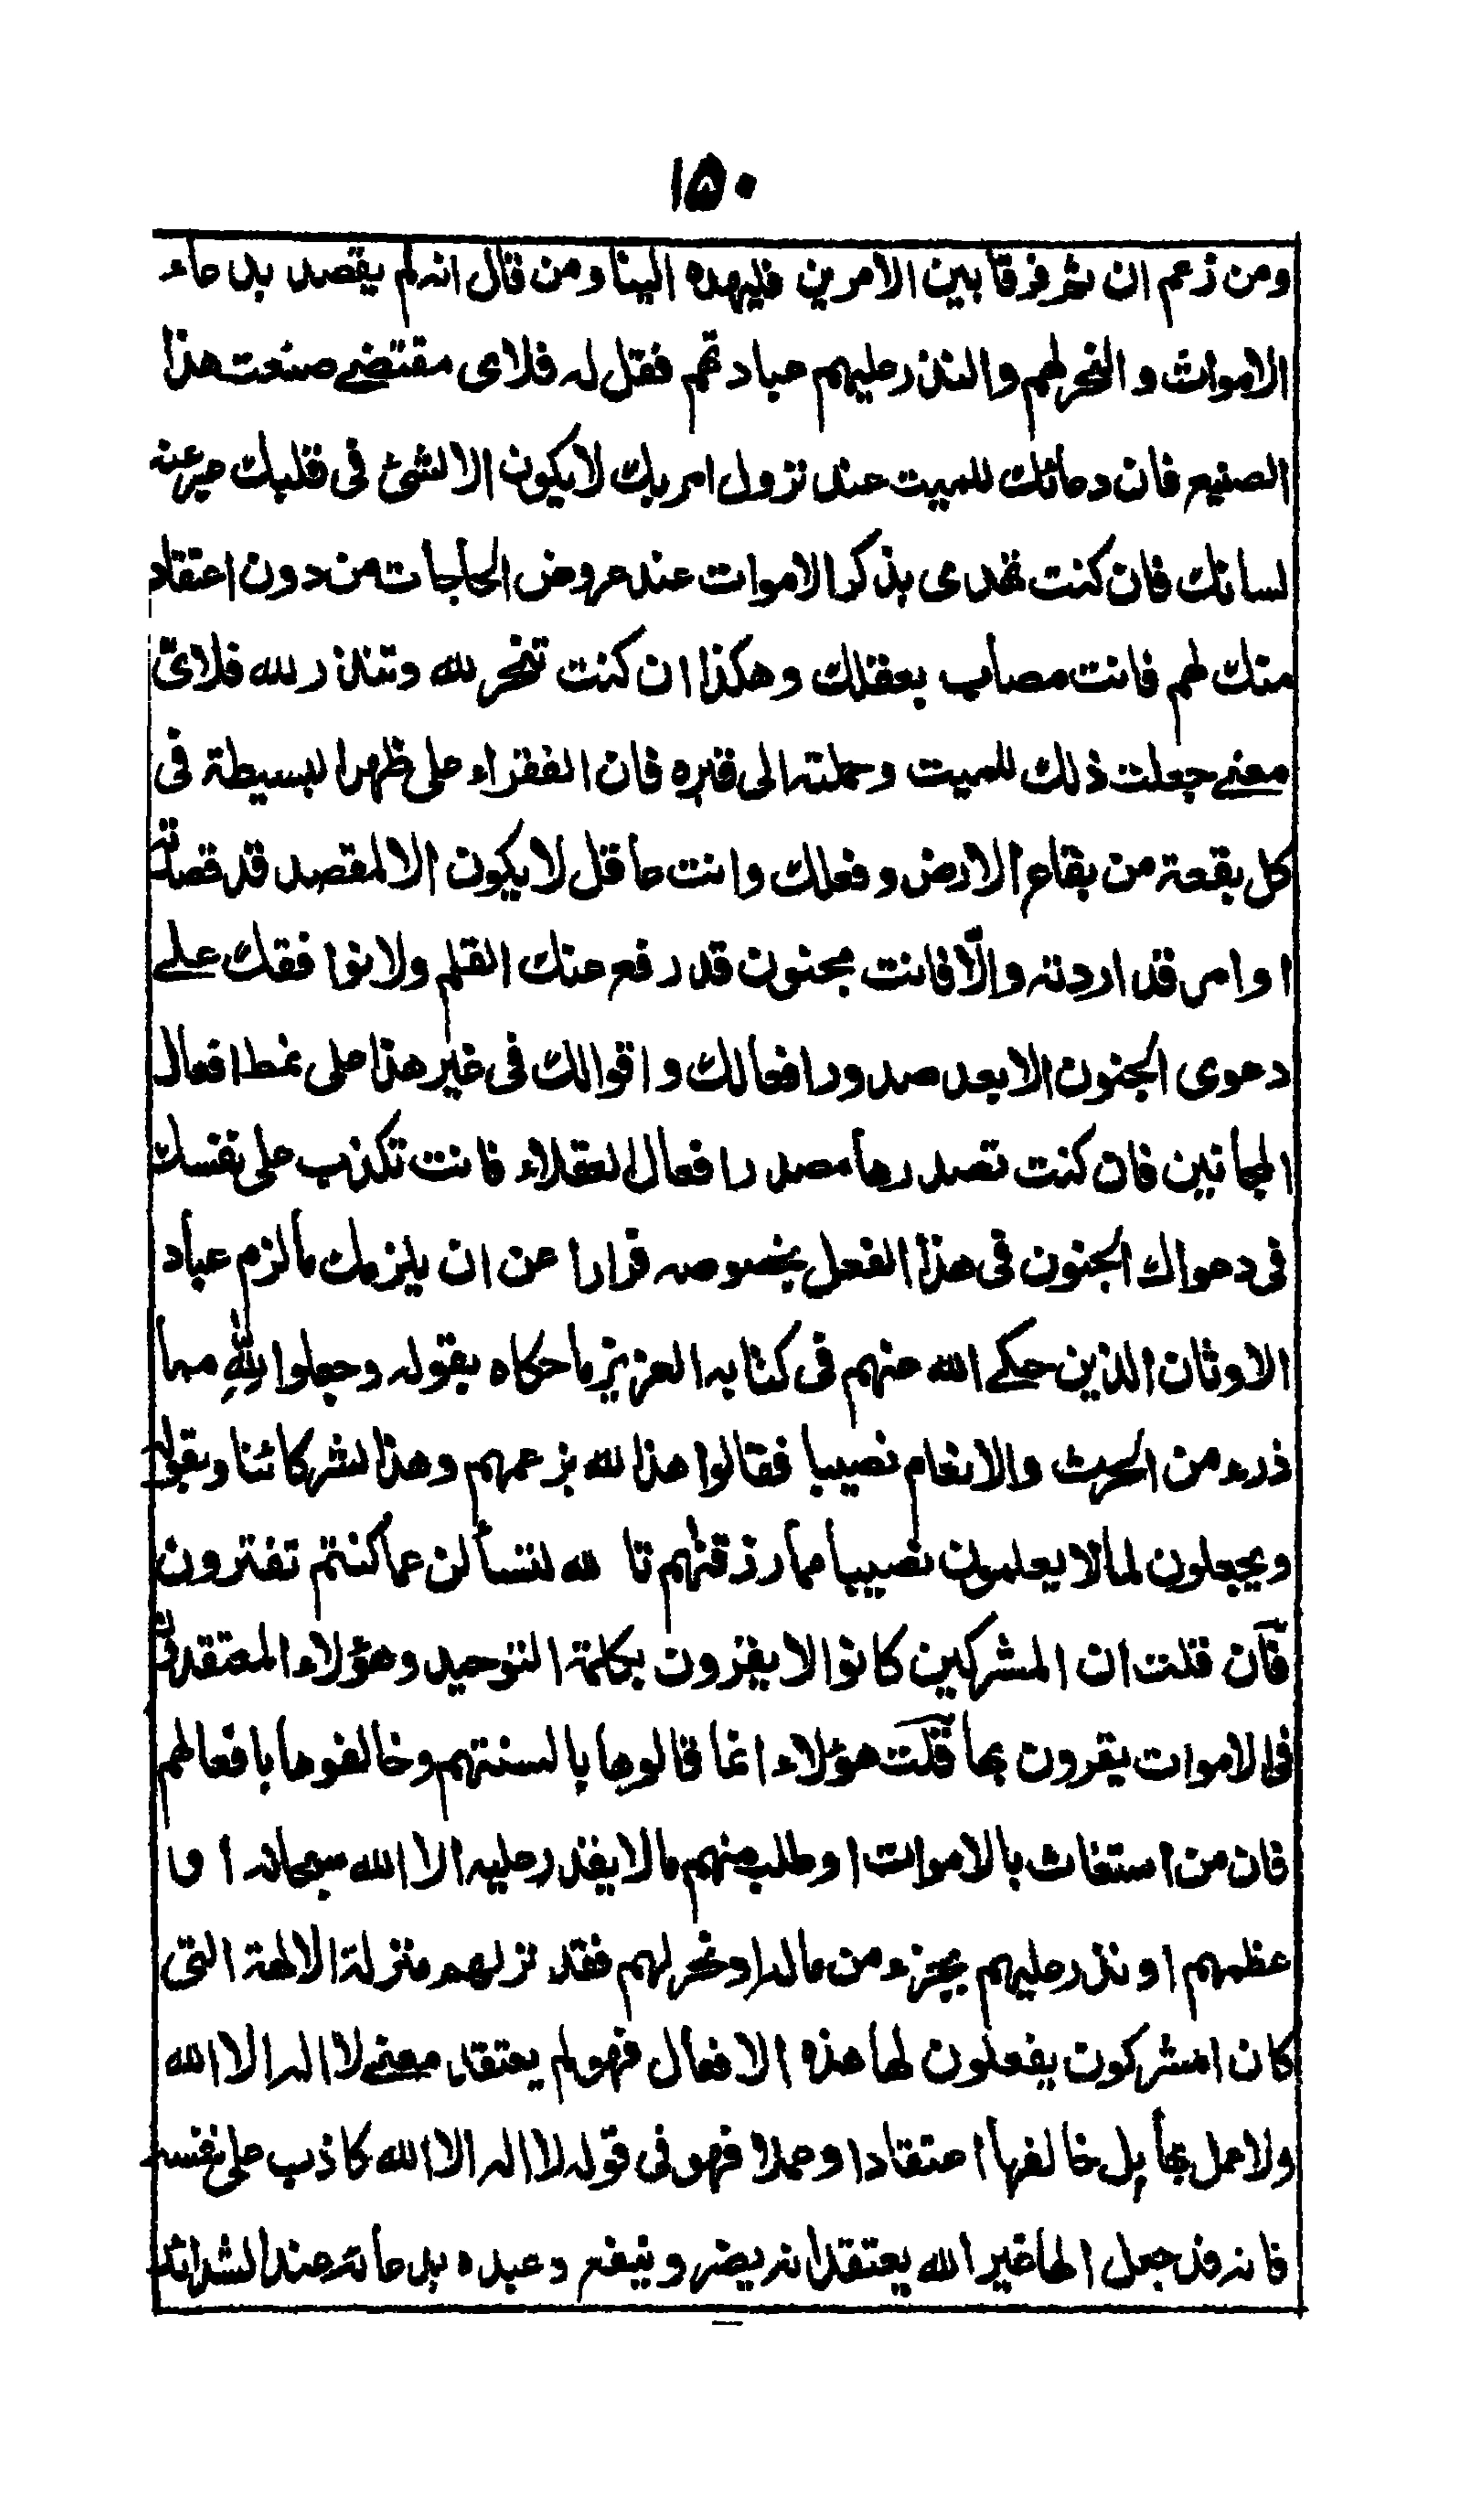 ١٥٠
ومن زعم ان ثم فرقا بين الامرين فليهده الينا ومن قال انه لم يقصد بدعاء
الاموات والنحر لهم والنذر عليهم عبادتهم فقل له فلاى مقتضے صنعت هذا
الصنيع فان دعائك للميت عند نزول امر بك لا يكون الا لشئ فى قلبك عبر عنه
لسانك فان كنت تهذى بذكر الاموات عند عروض الحاجات من دون اعتقاد
منك لهم فانت مصاب بعقلك وهكذا ان كنت تنحر لله وتنذر لله فلاىّ
معنے جعلت ذلك للميت وحملته الى قبره فان الفقراء على ظهر البسيطة فى
كل بقعة من بقاع الارض وفعلك وانت عاقل لا يكون الا لمقصد قد قصدته
او امر قد اردته والّا فانت مجنون قد رفع عنك القلم ولا نوافقك علے
دعوى الجنون الا بعد صدور افعالك واقوالك فى غير هذا على نمط افعال
المجانين فان كنت تصدرها مصدر افعال العقلاء فانت تكذب على نفسك
فى دعواك الجنون فى هذا الفعل بخصوصه فرارا عن ان يلزمك ما لزم عباد
الاوثان الذين حكے الله عنهم فى كتابه العزيز ما حكاه بقوله وجعلوا للهِ مما
ذرء من الحرث والانعام نصيبا فقالوا هذا لله بزعمهم وهذا لشركائنا وبقوله
ويجعلون لما لا يعلمون نصيبا مما رزقنهم تا لله لتسألن عما كنتم تفترون
فآن قلت ان المشركين كانوا لا يقرون بكلمة التوحيد وهؤلاء المعتقدون
فى الاموات يقرون بها قلت هؤلاء انما قالوها بالسنتهم وخالفوها بافعالهم
فان من استغاث بالاموات او طلب منهم ما لا يقدر عليه الا الله سبحانه او
عظمهم او نذر عليهم بجزء من ماله او نحر لهم فقد نزلهم منزلة الالهة التى
كان المشركون يفعلون لها هذه الافعال فهو لم يعتقد معنے لا اله الا الله
ولا عمل بها بل خالفها اعتقادا وعملا فهو فى قوله لا اله الا الله كاذب على نفسه
فانه قد جعل الها غير الله يعتقد انه يضر وينفع وعبده بدعائه عند الشدائد